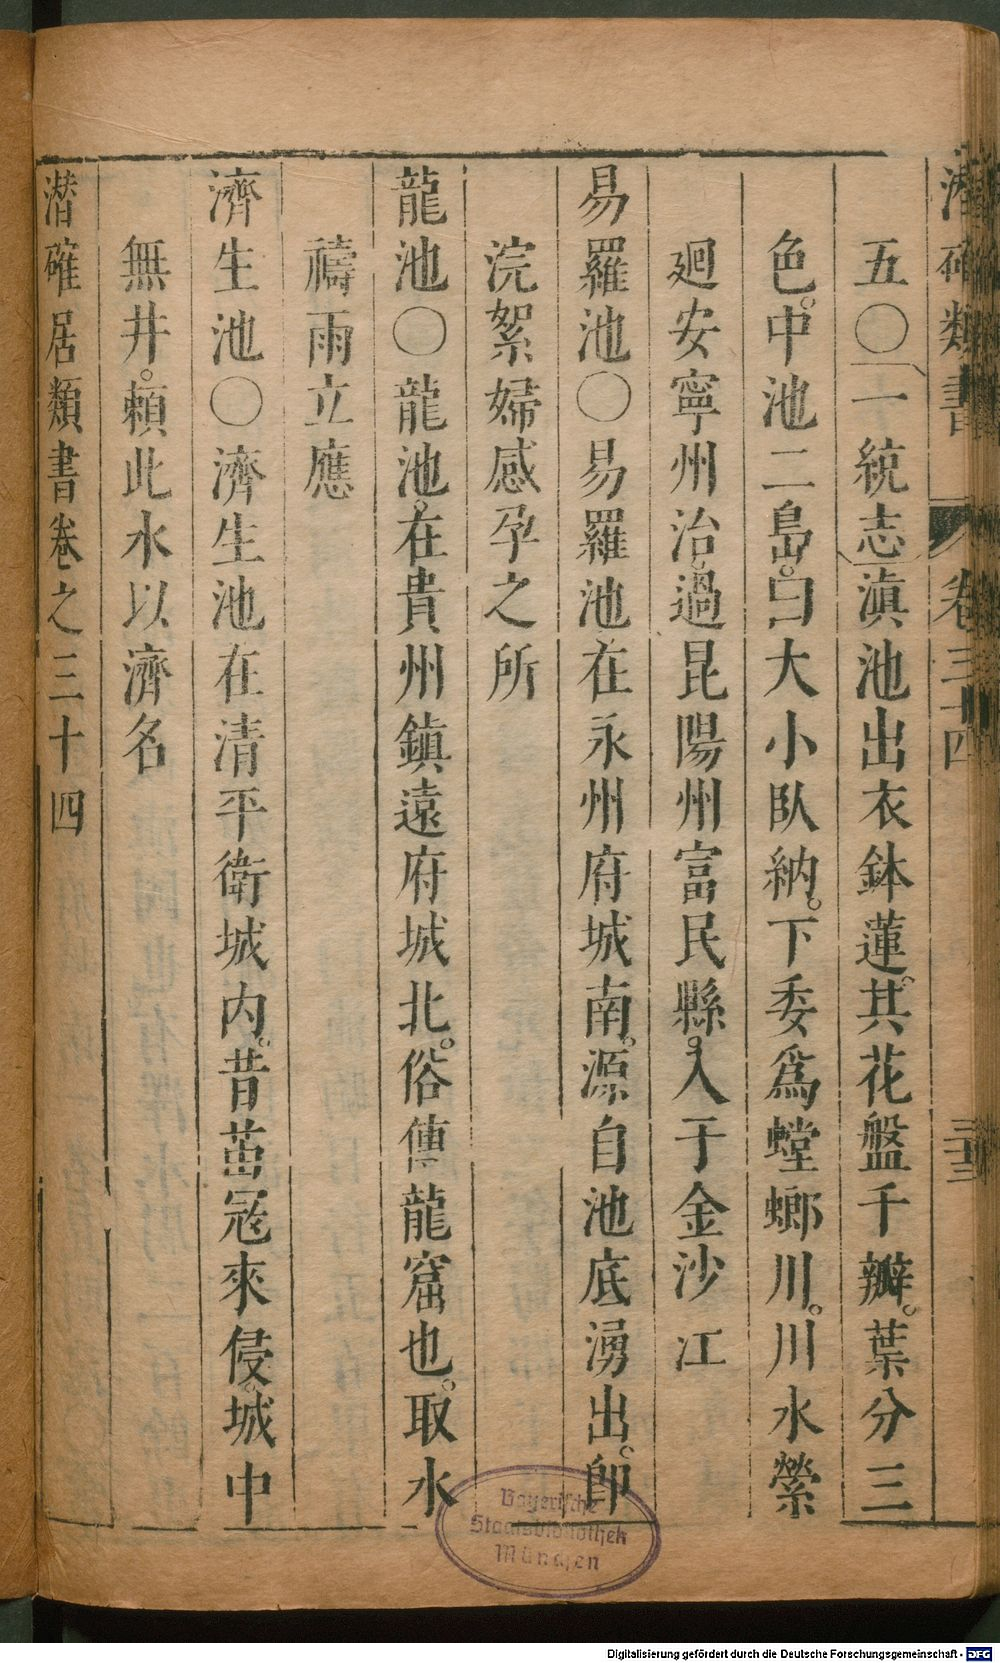 潛確類書 卷三十四 三十三
五〇一統志滇池出衣鉢蓮。其花盤千瓣。葉分三
色。中池二島。曰大小臥納。下委爲螳螂川。川水縈
廻安寧州治。過昆陽州富民縣。入于金沙江
易羅池〇易羅池在永州府城南。源自池底湧出。卽
浣絮婦感孕之所
龍池〇龍池在貴州鎮遠府城北。俗傳龍窟也。取水
禱雨立應
濟生池〇濟生池在清平衛城內。昔苗冦來侵。城中
無井。賴此水以濟名
潛確居類書卷之三十四
Bayerische
Staatsbibliothek
München
Digitalisierung gefördert durch die Deutsche Forschungsgemeinschaft - DFG